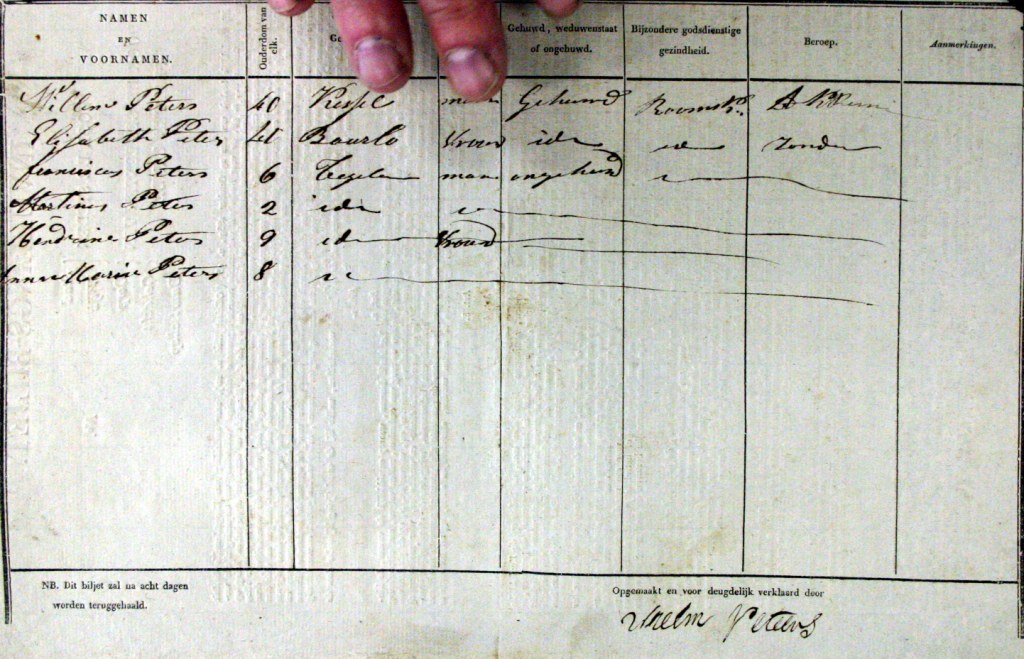 NAMEN EN VOORNAMEN. Ouderdom van elk. Gehuwd, weduwenstaat of ongehuwd. Bijzondere godsdienstige gezindheid. Beroep. Aanmerkingen.
Willem Peters 40 Kessel man Gehuwd
Elisabeth Peters 41 Baarlo Vrouw idem id zonder
franciscus Peters 6 Tegelen man ongehuwd
Martinus Peters 2 idem
Hendrina Peters 9 idem Vrouw
Anna Maria Peters 8
NB. Dit biljet zal na acht dagen
worden teruggehaald.
Opgemaakt en voor deugdelijk verklaard door
Wilhelm Peters